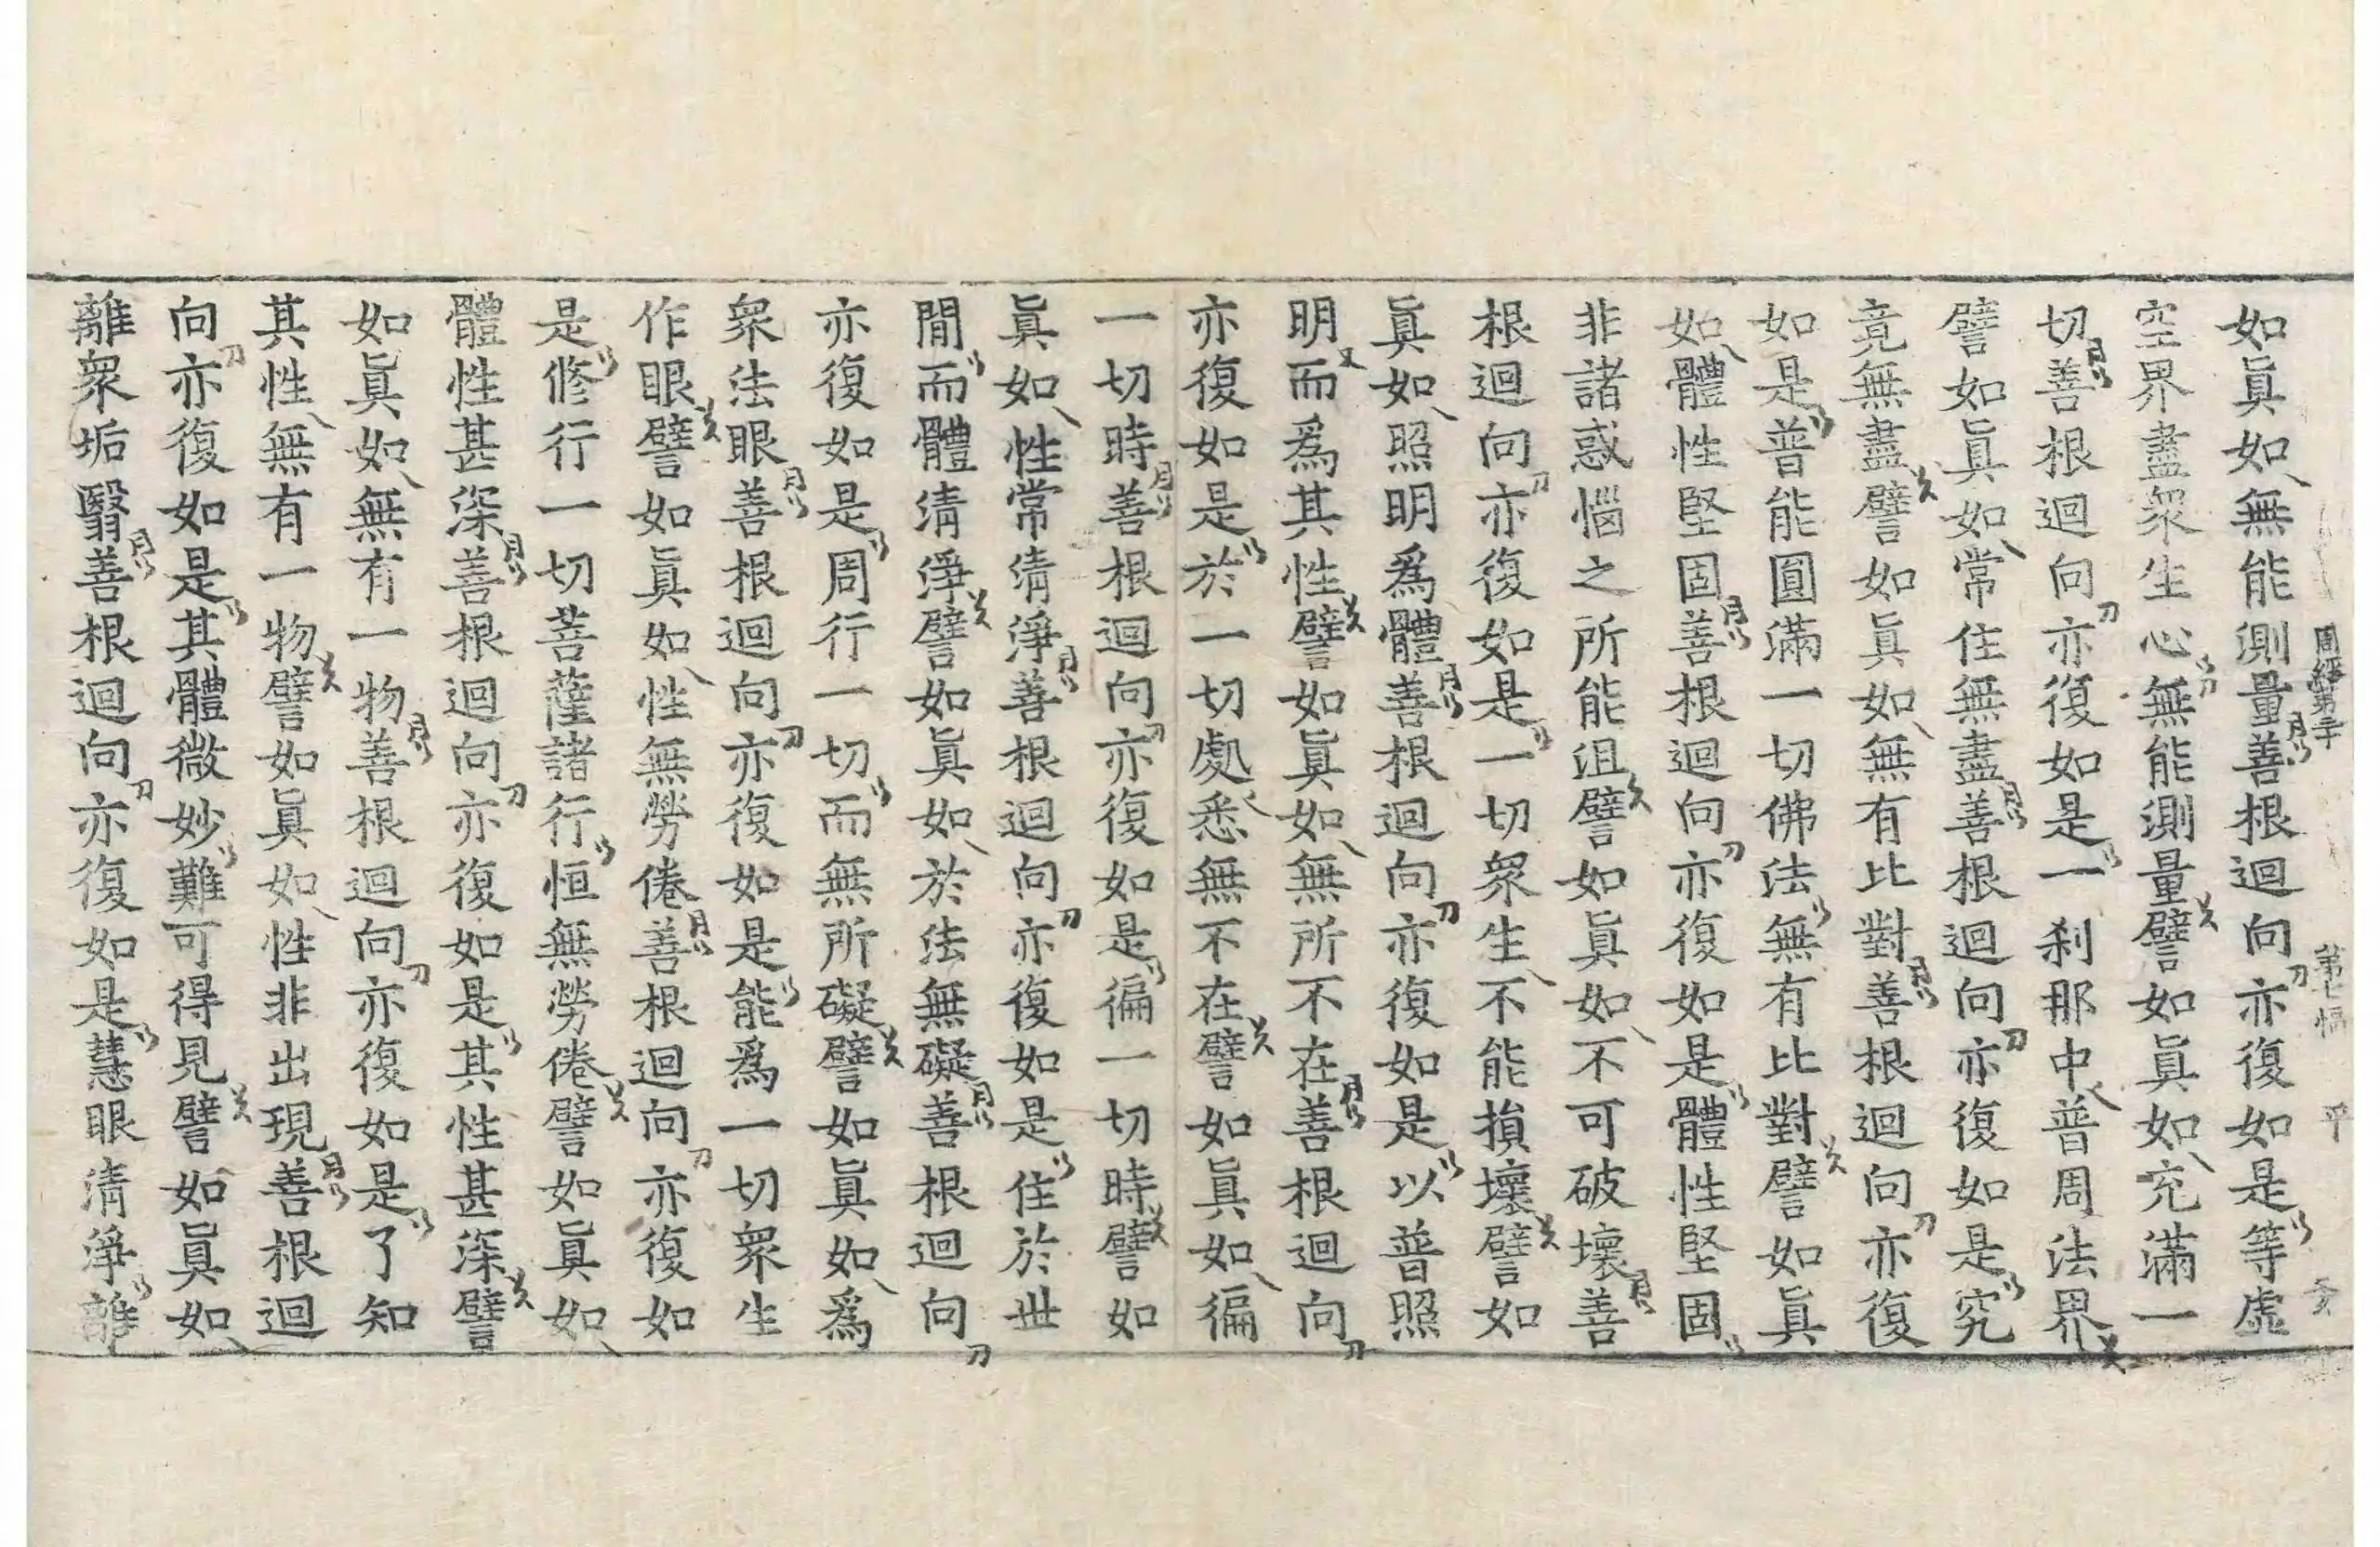 如眞如無能測量善根迴向亦復如是等虛
空界盡衆生心無能測量譬如眞如充滿一
切善根迴向亦復如是一刹那中普周法界
譬如眞如常住無盡善根迴向亦復如是究
竟無盡譬如眞如無有比對善根迴向亦復
如是普能圓滿一切佛法無有比對譬如眞
如體性堅固善根迴向亦復如是體性堅固
非諸惑惱之所能沮譬如眞如不可破壞善
根迴向亦復如是一切衆生不能損壞譬如
眞如照明爲體善根迴向亦復如是以普照
明而爲其性譬如眞如無所不在善根迴向
亦復如是於一切處悉無不在譬如眞如徧
一切時善根迴向亦復如是徧一切時譬如
眞如性常淸淨善根迴向亦復如是住於世
間而體淸淨譬如眞如於法無礙善根迴向
亦復如是周行一切而無所礙譬如眞如爲
衆法眼善根迴向亦復如是能爲一切衆生
作眼譬如眞如性無勞倦善根迴向亦復如
是修行一切菩薩諸行恒無勞倦譬如眞如
體性甚深善根迴向亦復如是其性甚深譬
如眞如無有一物善根迴向亦復如是了知
其性無有一物譬如眞如性非出現善根迴
向亦復如是其體微妙難可得見譬如眞如
離衆垢翳善根迴向亦復如是慧眼淸淨離